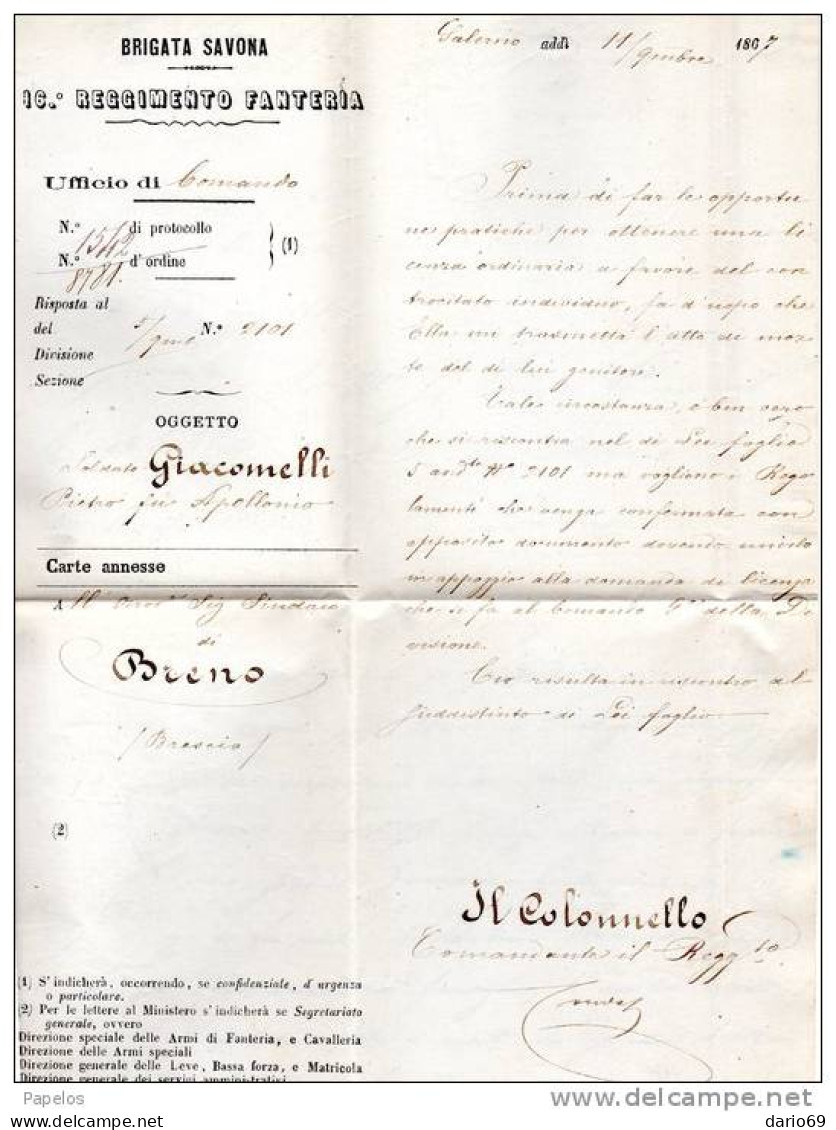 BRIGATA SAVONA
16.º REGGIMENTO FANTERIA
Ufficio di Comando
N.º 1542 di protocollo
N.º 8781. d'ordine
(1)
Risposta al
del 5/9mbe N.º 2101
Divisione
Sezione
OGGETTO
Soldato Giacomelli
Pietro fu Apollonio
Carte annesse
A Ill Sig Sindaco
di
Breno
(Brescia)
(2)
(1) S'indicherà, occorrendo, se confidenziale, d'urgenza
o particolare.
(2) Per le lettere al Ministero s'indicherà se Segretariato
generale, ovvero
Direzione speciale delle Armi di Fanteria, e Cavalleria
Direzione delle Armi speciali
Direzione generale delle Leve, Bassa forza, e Matricola
Direzione generale dei servizi amministrativi
addì 11/9mbre 1867
Prima di far le opportu
ne pratiche per ottenere una li
cenza ordinaria a favore del con
trocitato individuo, fa d'uopo che
Ella mi trasmetta l'atto di mor
te del di lui genitore.
Tale circostanza, è ben vero
che si riscontra nel di Lei foglio
5 and.te Nº 2101 ma vogliono i Rego
lamenti che venga confermata con
apposito documento dovendo unirlo
in appoggio alla domanda di licenza
che si fa al Comando G.le della Di
visione.
Ciò risulta in riscontro al
suddistinto di Lei foglio
Il Colonnello
Comandante il Regg.to
Papelos
delcampe.net
dario69